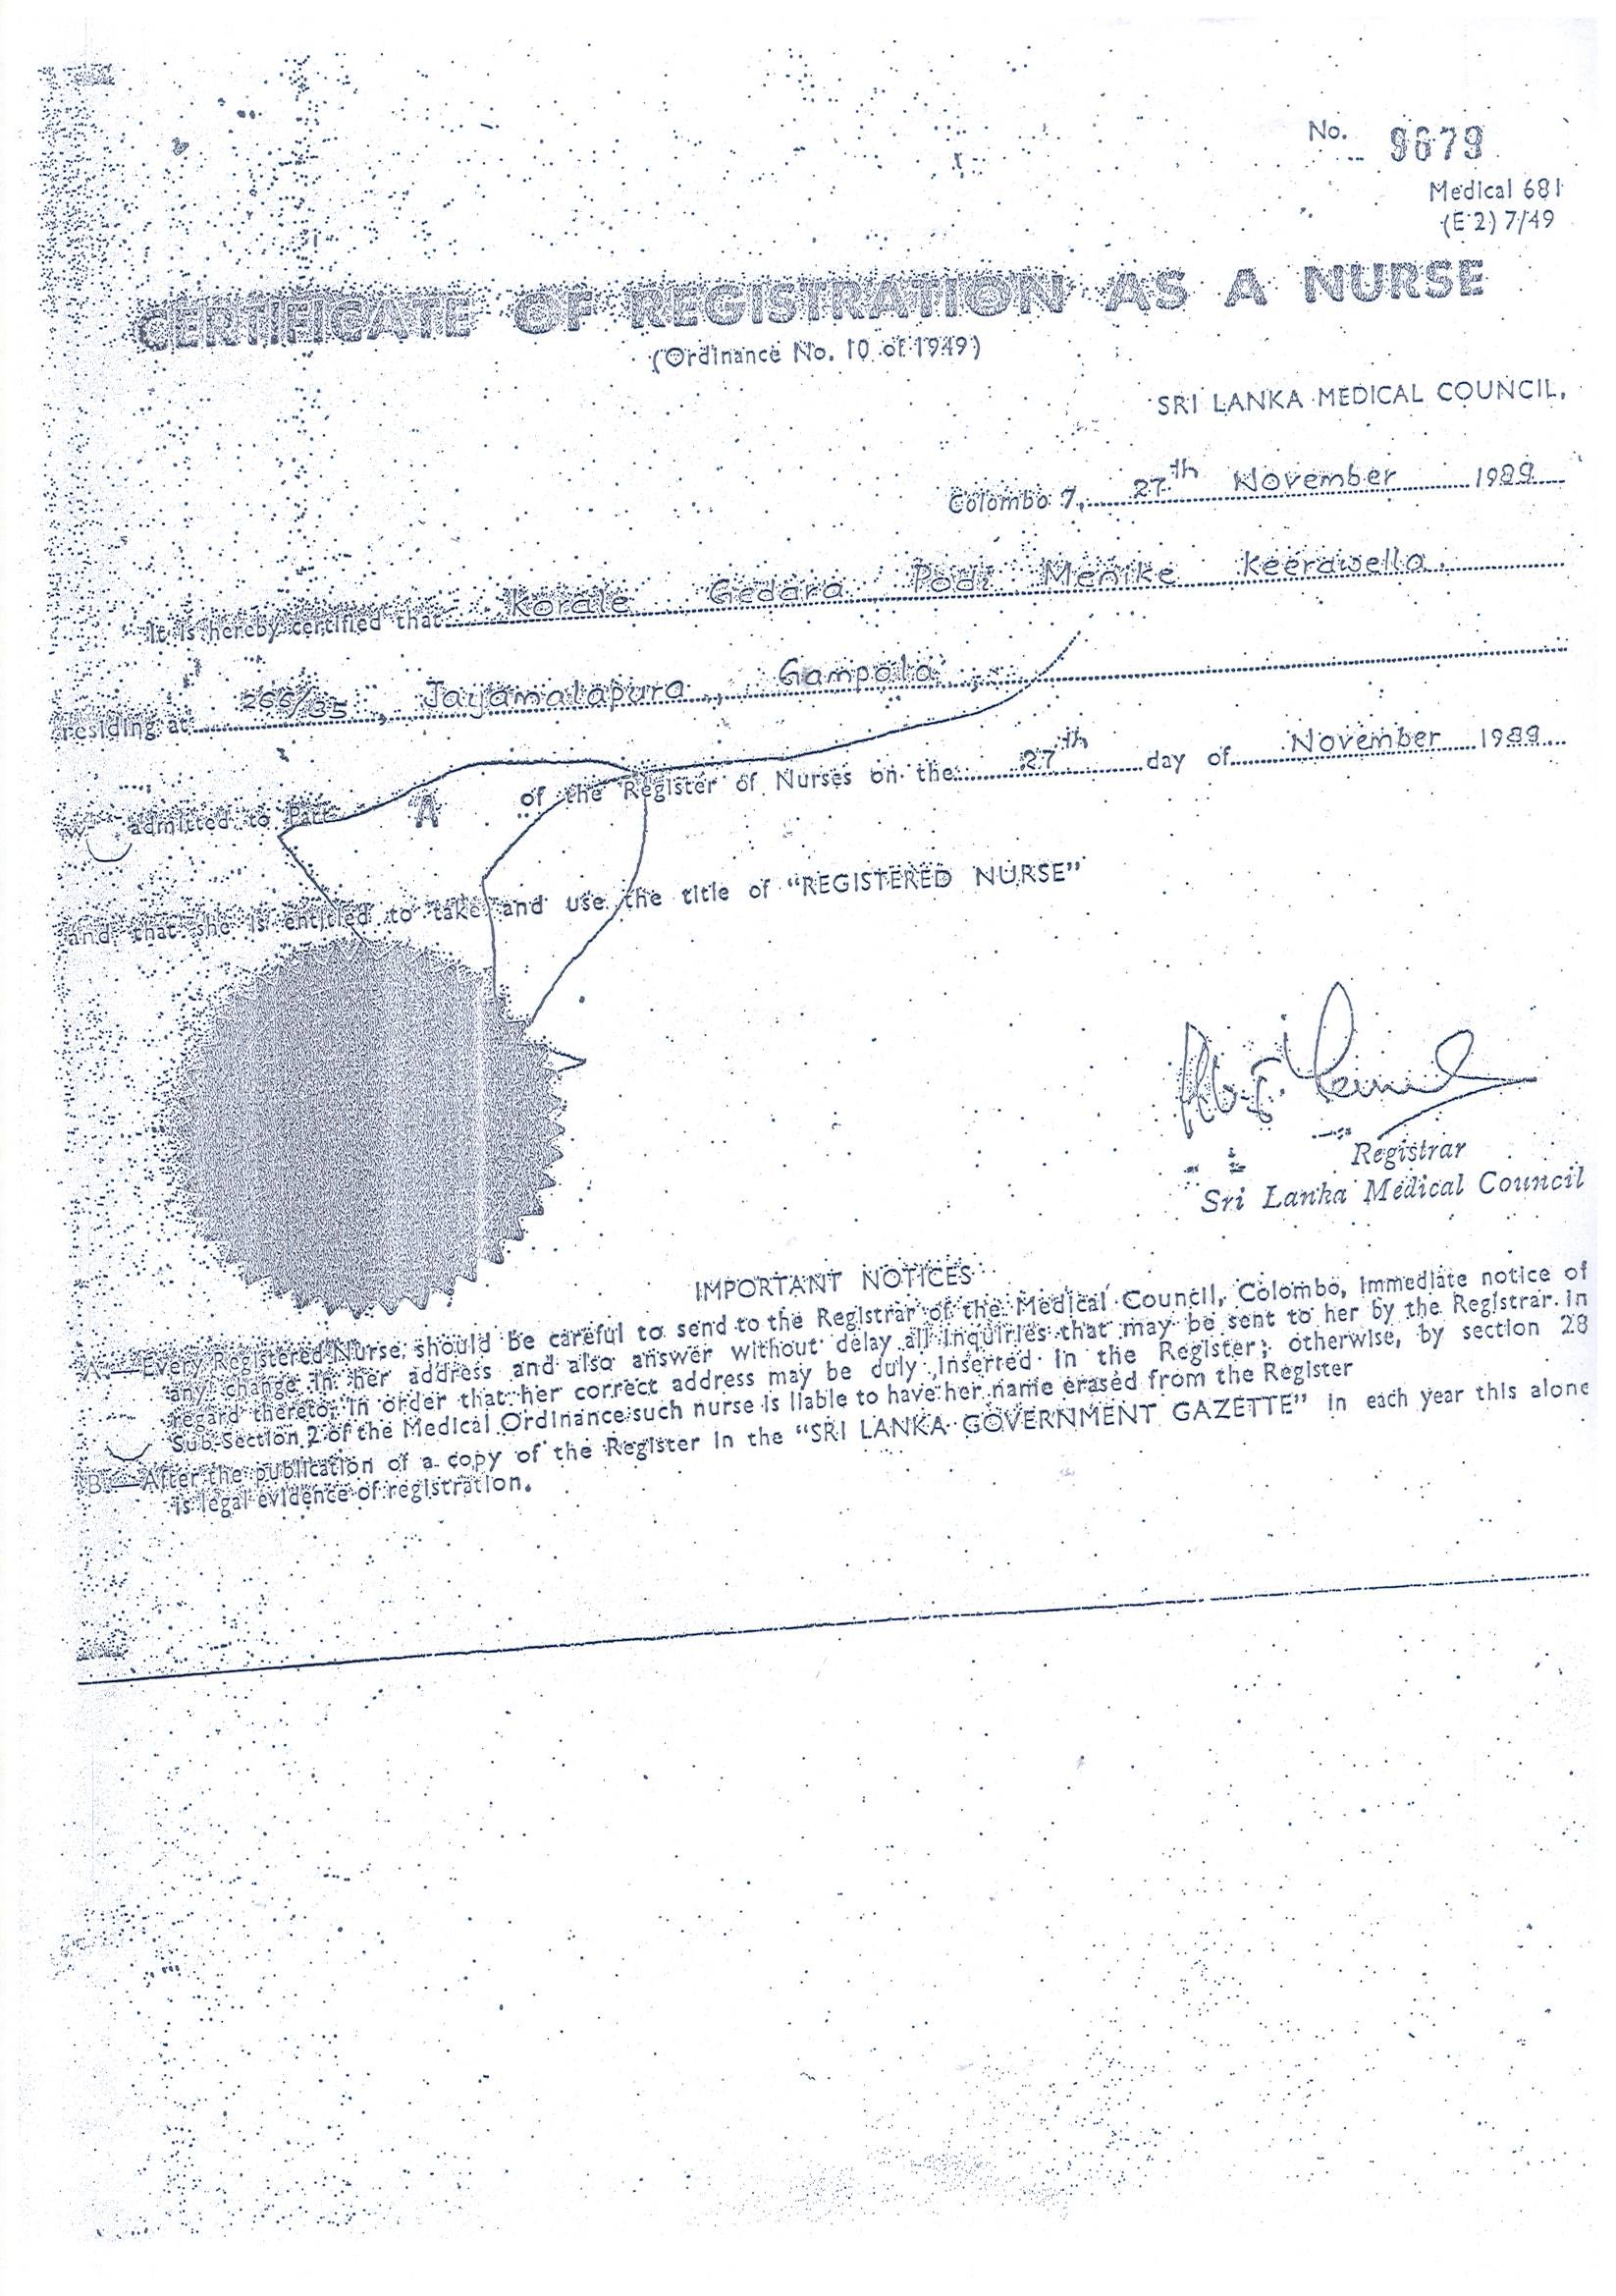 No. 9679
Medical 681
(E 2) 7/49
CERTIFICATE OF REGISTRATION AS A NURSE
(Ordinance No. 10 of 1949)
SRI LANKA MEDICAL COUNCIL,
Colombo 7, 27th November 1989
It is hereby certified that Korale Gedara Podi Menike Keerawella.
residing at 266/35, Jayamalapura, Gampola,
admitted to Part A of the Register of Nurses on the 27th day of November 1989
and that she is entitled to take and use the title of "REGISTERED NURSE"
Registrar
Sri Lanka Medical Council
IMPORTANT NOTICES
A.—Every Registered Nurse should be careful to send to the Registrar of the Medical Council, Colombo, immediate notice of
any change in her address and also answer without delay all inquiries that may be sent to her by the Registrar in
regard thereto, in order that her correct address may be duly inserted in the Register; otherwise, by section 28
Sub-Section 2 of the Medical Ordinance such nurse is liable to have her name erased from the Register
B.—After the publication of a copy of the Register in the "SRI LANKA GOVERNMENT GAZETTE" in each year this alone
is legal evidence of registration.